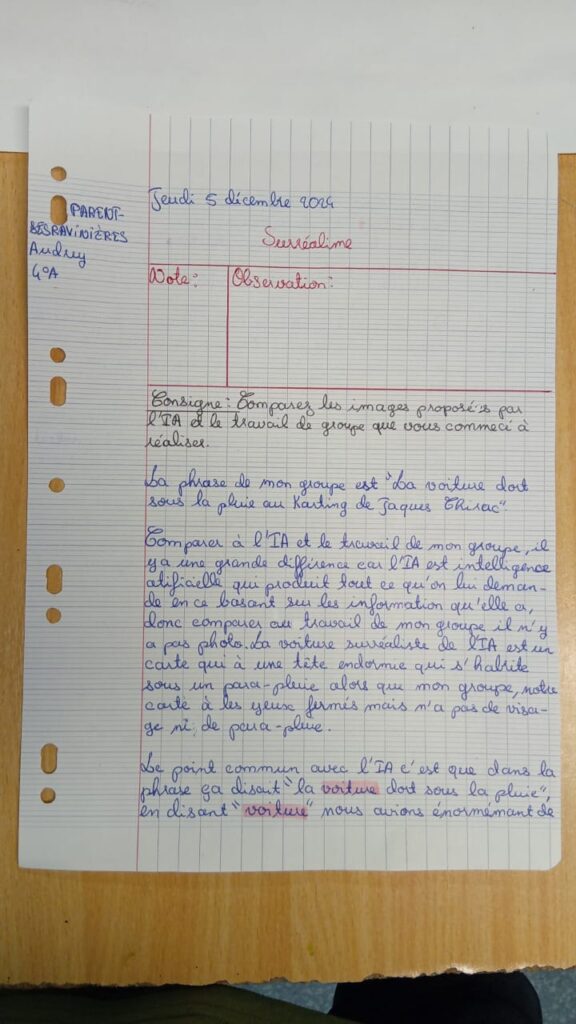 Jeudi 5 décembre 2024
PARENT-
DESRAVINIÈRES
Audrey
4°A
Surréalime
Note:
Observation:
Consigne: Comparez les images proposé's par
l'IA et le travail de groupe que vous commecé à
réaliser.
La phrase de mon groupe est "La voiture dort
sous la pluie au Karting de Jaques Chirac".
Comparer à l'IA et le travail de mon groupe, il
y a une grande différence car l'IA est intelligence
atificielle qui produit tout ce qu'on lui deman-
de en ce basant sur les information qu'elle a,
donc comparer au travail de mon groupe il n'y
a pas photo. La voiture surréaliste de l'IA est un
carte qui à une tête endormie qui s'habrite
sous un para-pluie alors que mon groupe, notre
carte à les yeux fermés mais n'a pas de visa-
ge ni de para-pluie.
Le point commun avec l'IA c'est que dans la
phrase ça disait "la voiture dort sous la pluie",
en disant "voiture" nous avions énormémant de